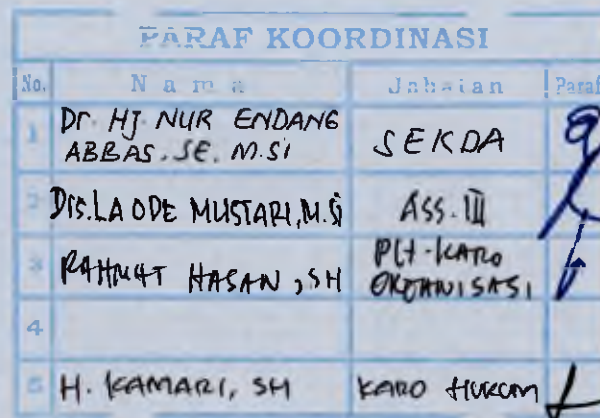 PARAF KOORDINASI
No. Nama Jabatan Paraf
1 Dr. HJ. NUR ENDANG ABBAS. SE. M.Si SEKDA
2 Drs. LA ODE MUSTARI, M.Si ASS. III
3 RAHMAT HASAN, SH PLH - KARO ORGANISASI
4
5 H. KAMARI, SH KARO HUKUM